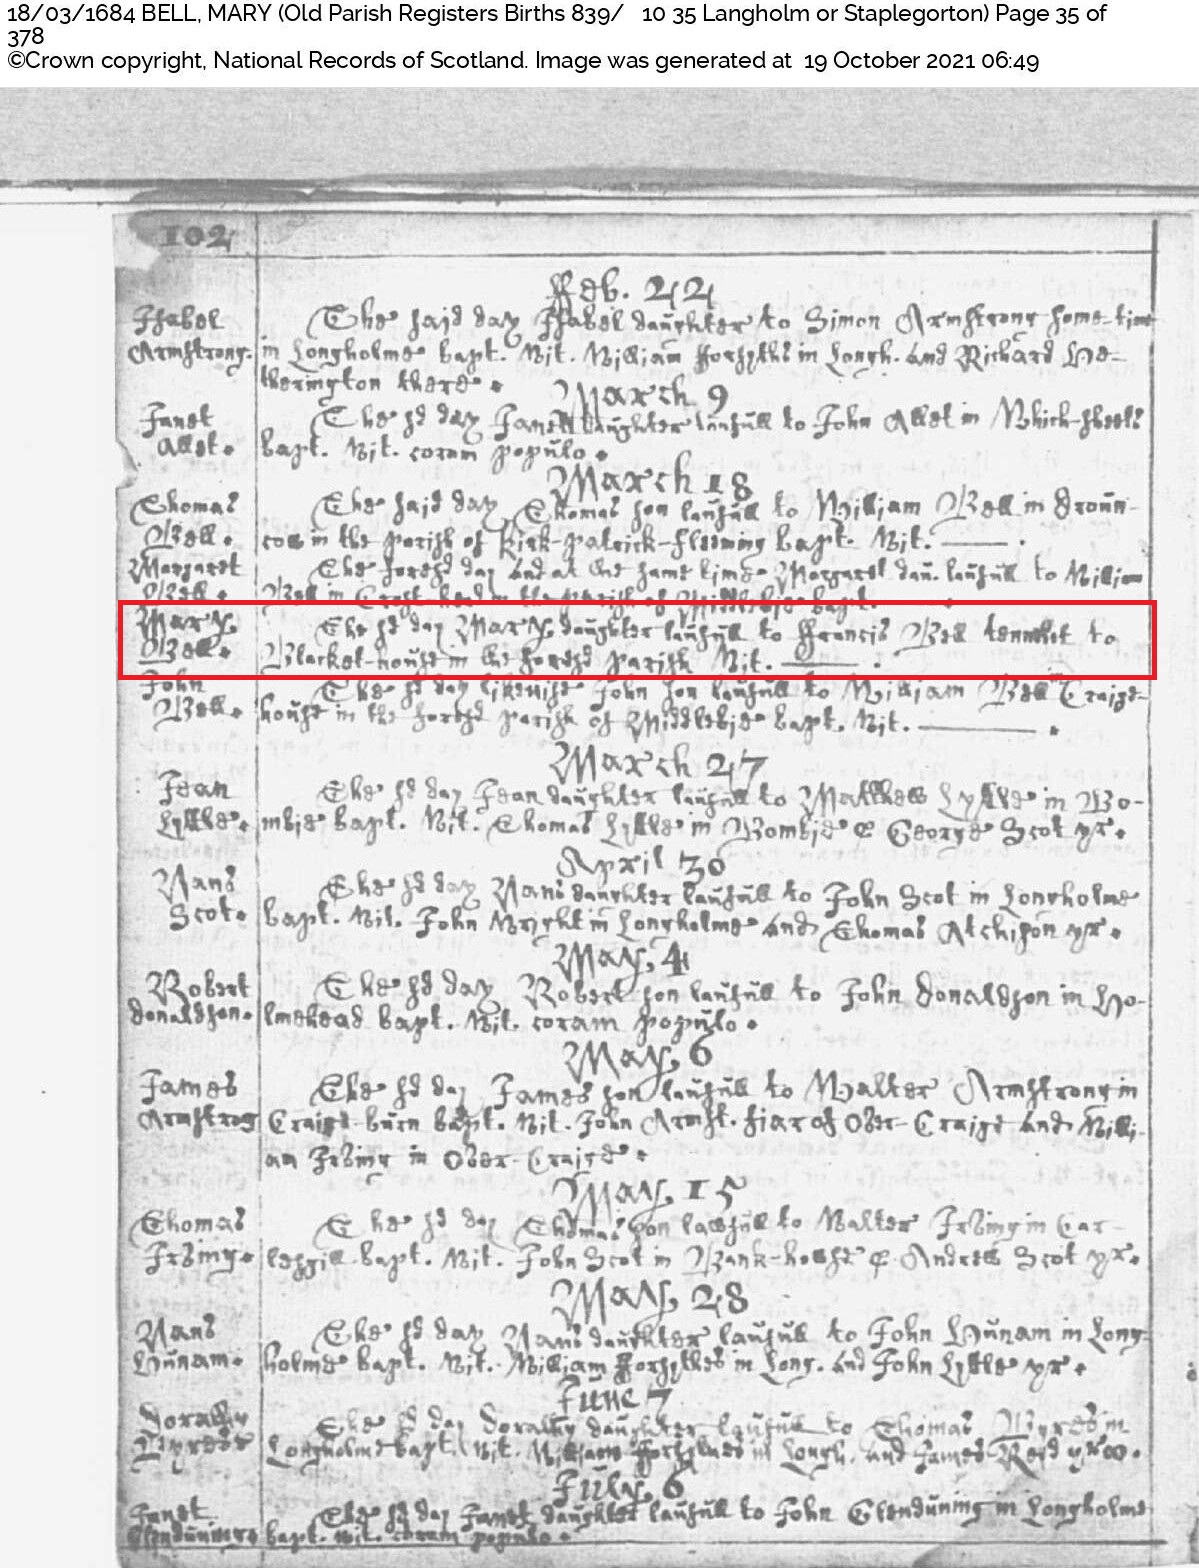 18/03/1684 BELL, MARY (Old Parish Registers Births 839/ 10 35 Langholm or Staplegorton) Page 35 of
378
©Crown copyright, National Records of Scotland. Image was generated at 19 October 2021 06:49
102
Feb. 22
Isabel The said day Isabel daughter to Simon Armstrong some-time
Armstrong. in Longholme bapt. Wit. William Forsyth in Longh. and Richard He-
therington there.
March 9
Janet The sd day Janet daughter laufull to John Allet in Whick-sheels
Allet. bapt. Wit. coram populo.
March 18
Thomas The said day Thomas son laufull to William Bell in Broun-
Bell. in the parish of Kirk-patrick-fleeming bapt. Wit.
Margaret The foresd day and at the same time Margaret dau. laufull to William
Bell. Bell in head in the parish of Middlebie bapt.
Mary The sd day Mary daughter laufull to Francis Bell tennket to
Bell. Blacket-house in the foresd parish Wit.
John The sd day likewise John son laufull to William Bell in Craigs-
Bell. house in the foresd parish of Middlebie bapt. Wit.
March 27
Jean The sd day Jean daughter laufull to Matthew Lyttle in Bo-
Lyttle. mbie bapt. Wit. Thomas Lyttle in Bombie & George Scot yr.
April 30
Nans The sd day Nans daughter laufull to John Scot in Longholme
Scot. bapt. Wit. John Wright in Longholme and Thomas Atchison yr.
May 4
Robert The sd day Robert son laufull to John Donaldson in Ho-
Donaldson. lmehead bapt. Wit. coram populo.
May 6
James The sd day James son laufull to Walter Armstrong in
Armstrog Craigs-burn bapt. Wit. John Armst. fiar of Over-Craigs and Willi-
am Irving in Over-Craige.
May 15
Thomas The sd day Thomas son lawfull to Walter Irving in Car-
Irving. bapt. Wit. John Scot in Bank-house & Andrew Scot yr.
May 28
Nans The sd day Nans daughter laufull to John Hunam in Long-
Hunam. holme bapt. Wit. William Forsythes in Long. and John Lyttle yr.
June 7
Dorathy The sd day Dorathy daughter laufull to Thomas Byres in
Longholme bapt. Wit. William in Longh. and James Reid
July 6
Janet The sd day Janet daughter laufull to John Glenduning in Longholme
Glenduning bapt. wit. coram populo.